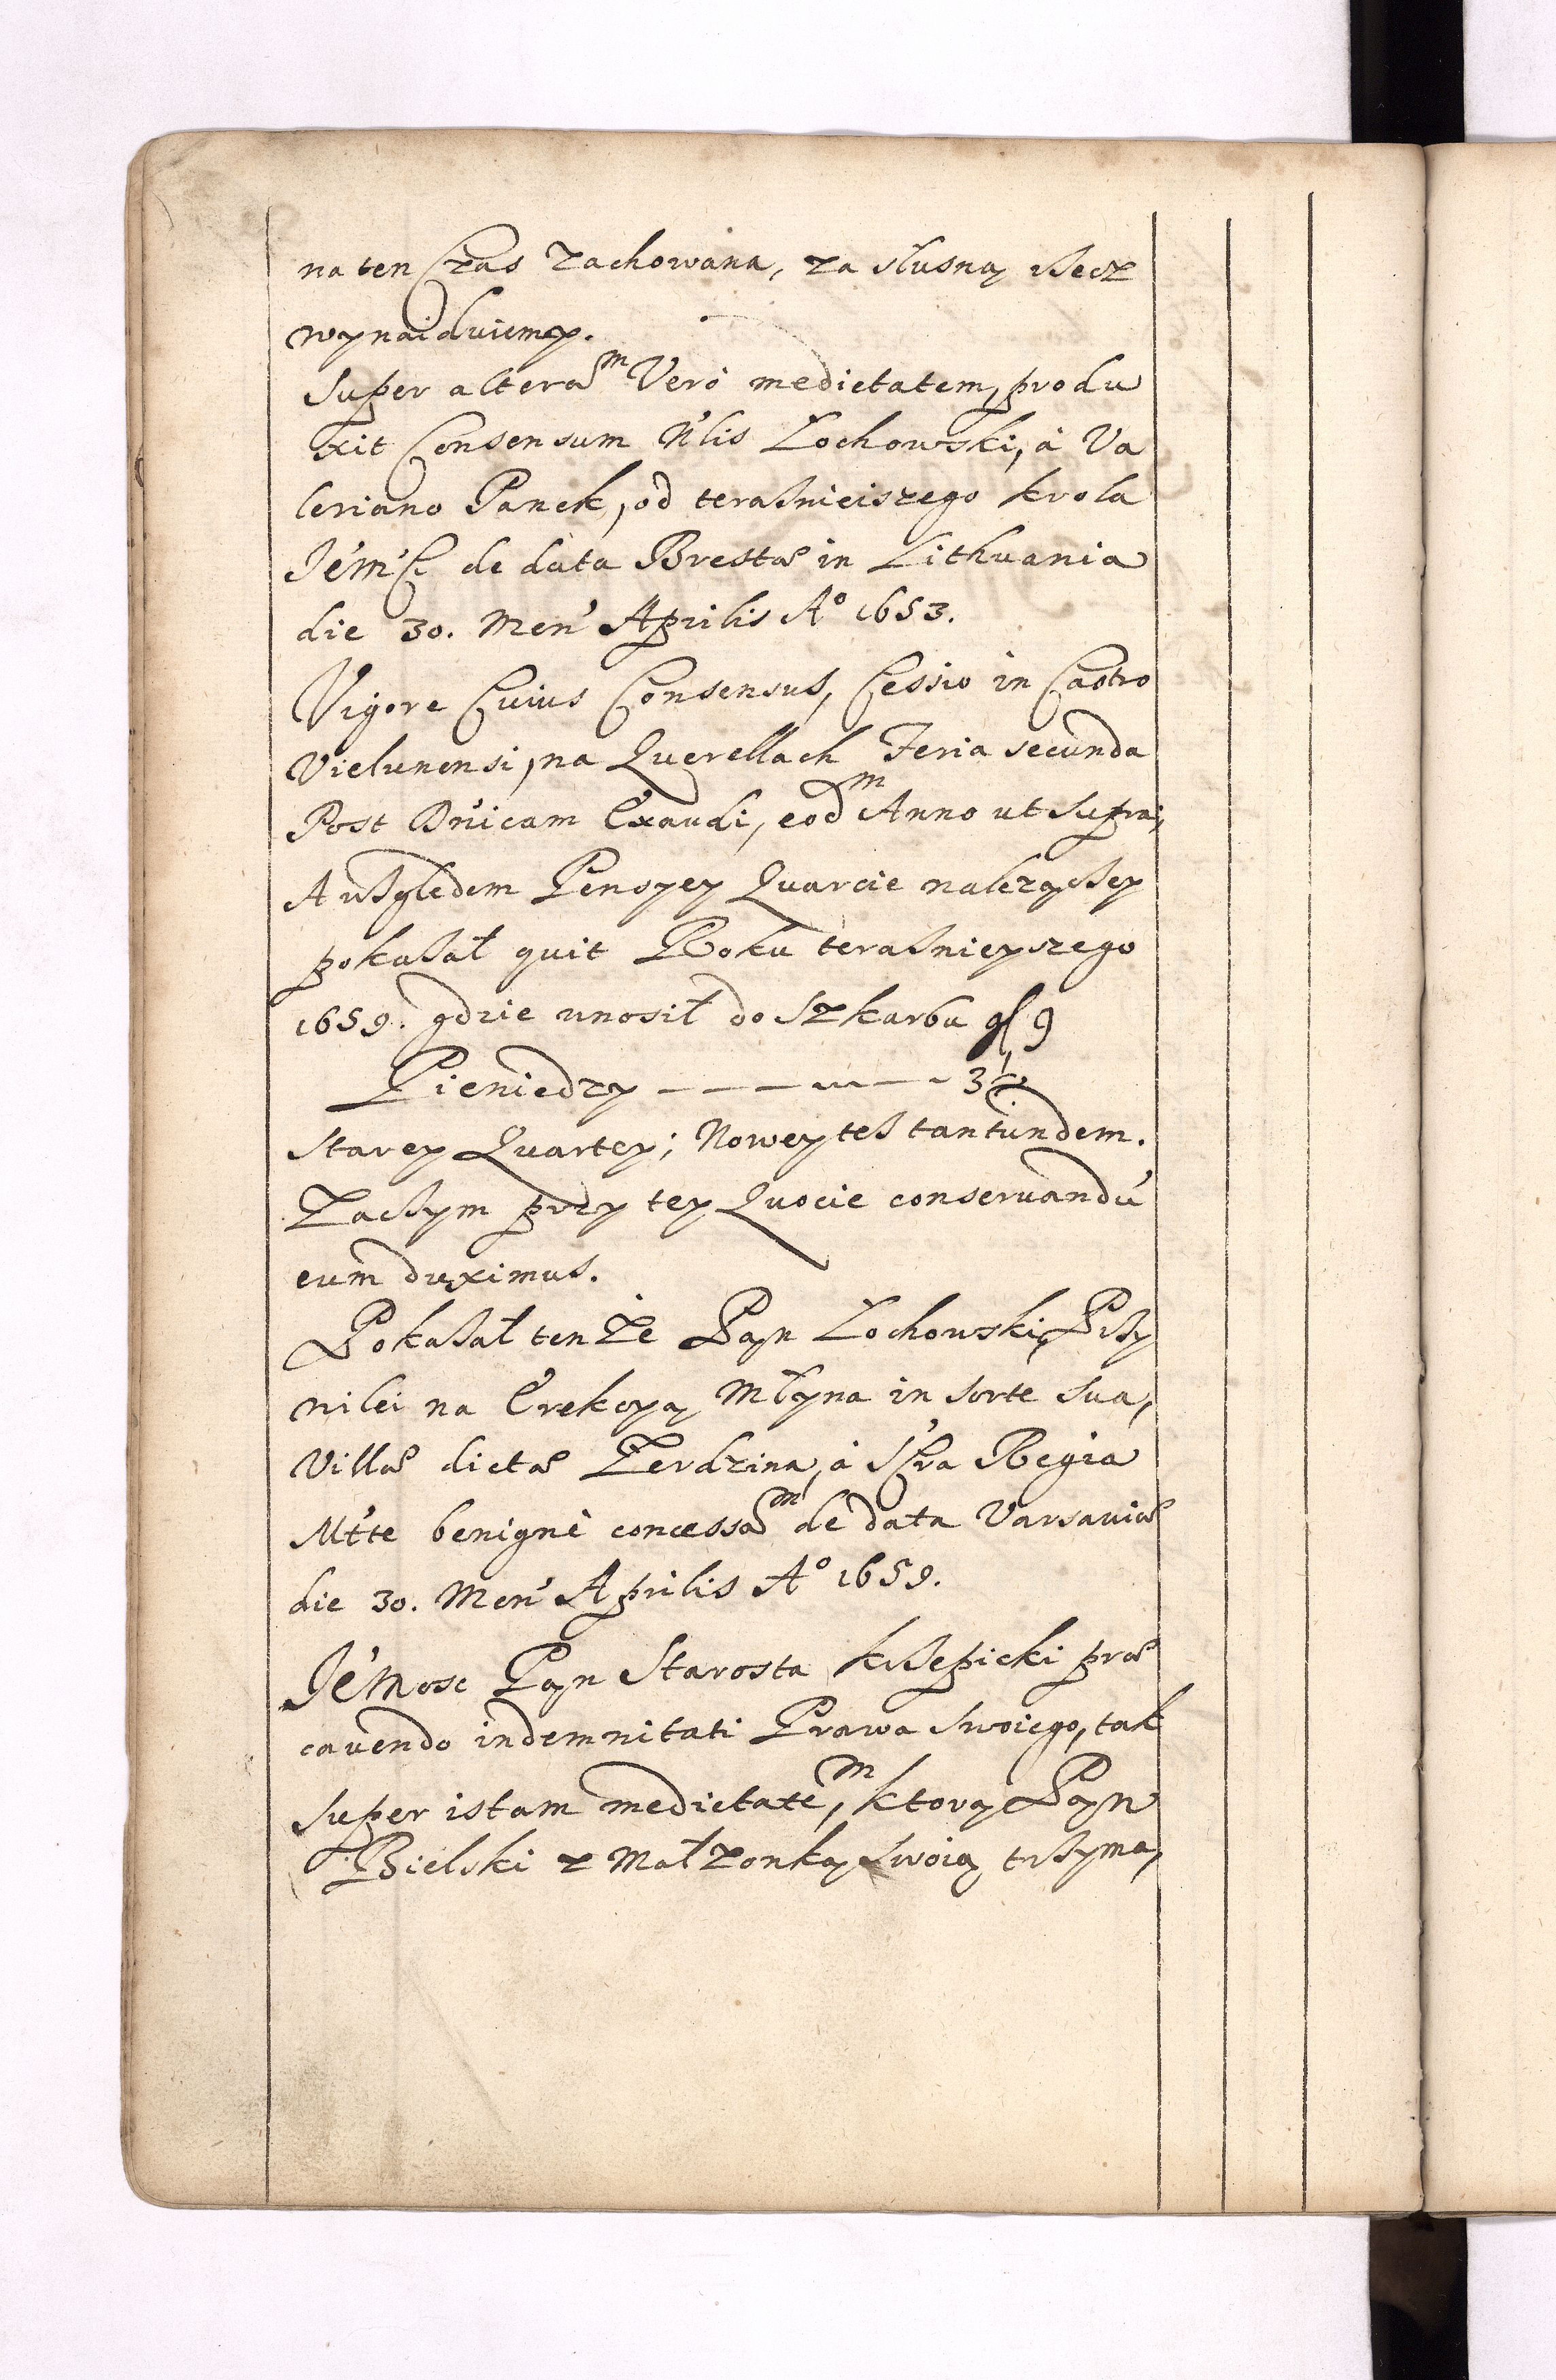 na ten Czas zachowana, za słusną Rzecz
wynaiduiemy.
Super altera͠m Verò medietatem, produ
xit Consensum N'lis Łochowski, à Va
leriano Panek, od terazńieiszego krola
Je'm'C de data Brestæ in Lithuania
die 30. Men' Aprilis A° 1653.
Vigore Cuius Consensus, Cessio in Castro
Vielunensi, na Querellach Feria secunda
Post Dn'icam Exaudi, eodm Anno ut supra,
A wzgledem Pensyey Quarcie nalezączey
pokazał quit Roku terazniey szego
1659. gdzie unosił do Szkarbu
Pieniedzy
Starey Quartey; Nowey tez tantundem.
Zaczym przy tey Quocie conservandu'
eum duximus.
Pokazał tenże Pan Łochowski, Przy
wilei na Erekcyą Młyna in sorte sua,
Villæ dictæ Zerdzina, à S'Cra Regia
Mt'te benignè concessam de data Varsaviæ
die 30. Men' Aprilis A° 1659.
Je'Mosc Pan Starosta krzepicki præ
cavendo indemnitati Prawa swoiego, tak
super istam medietatem, ktorą Pan
Bielski z Małzonką swoią trzyma,